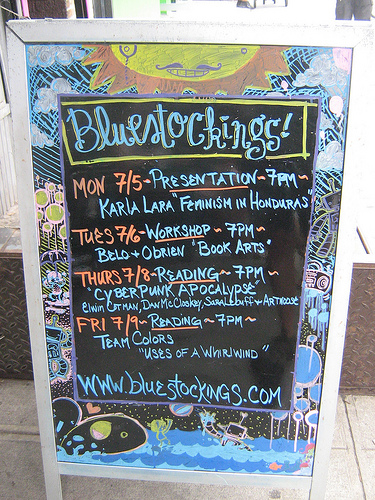 Bluestockings!
MON 7/5 - PRESENTATION - 7PM ~
KARLA LARA "FEMINISM IN HONDURAS"
TUES 7/6 - WORKSHOP ~ 7PM ~
BELO + OBRIEN "BOOK ARTS"
THURS 7/8 - READING ~ 7PM ~
"CYBERPUNK APOCALYPSE"
DAN McCloskey,
FRI 7/9 ~ READING ~ 7PM ~
TEAM COLORS
"USES OF A WHIRLWIND"
WWW.bluestockings.com